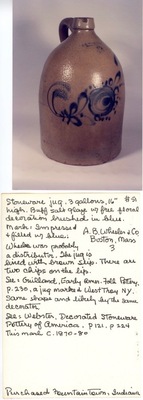 Stoneware jug. 3 gallons, 16"
high. Buff salt glaze w/ free floral
decoration brushed in blue.
Mark: Impressed
& filled w/ blue.
A.B. Wheeler & Co
Boston, Mass
3
Wheeler was probably
a distributor. The jug is
lined with brown slip. There are
two chips on the lip.
See: Guilland, Early Amer. Folk Pottery,
p. 230, a jug marked West Troy NY.
Same shape and likely by the same
decorator.
See: Webster, Decorated Stoneware
Pottery of America. P 121. P 224
This mark C. 1870-80
Purchased Fountaintown, Indiana